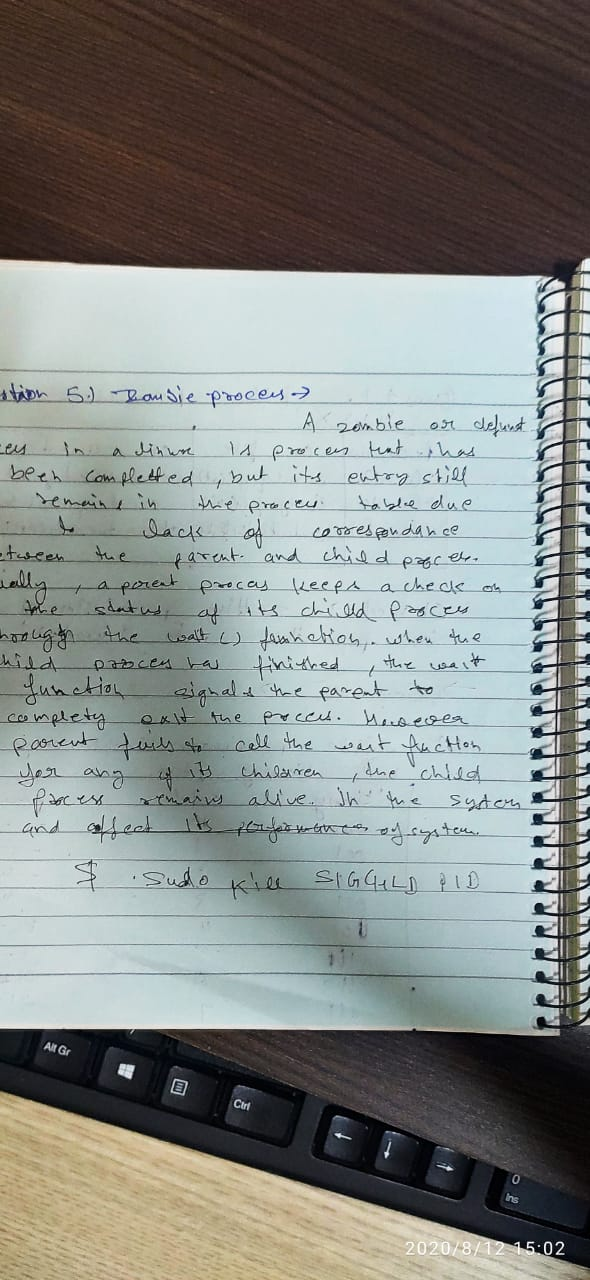 stion 5.) Zombie process →
A zombie or defunct
cess in a linux is process that has
been completted, but its entry still
remains in the process table due
to lack of correspondance
etween the parent and child process.
ually, a parent process keeps a check on
the status of its child process
hrough the wait () function. when the
hild process has finished, the wait
function signals the parent to
complety exit the process. However
parent fails to call the wait function
for any of its children, the child
process remains alive in the system
and affect its performance of system.
$ sudo kill SIGCHLD PID
Alt Gr
Ctrl
←
↓
→
0
Ins
2020/8/12 15:02